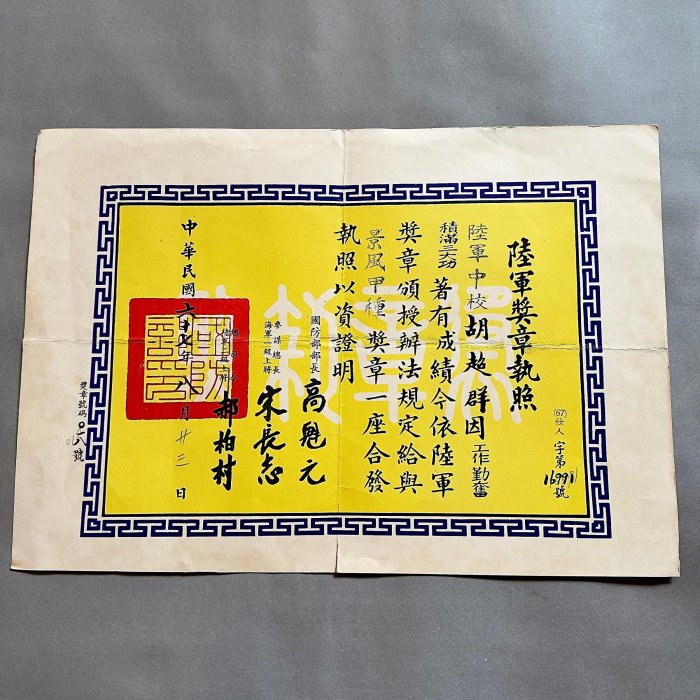 陸軍獎章執照
(67)仕人字第11699號
陸軍中校胡超群因工作勤奮
積滿三大功著有成績今依陸軍
獎章頒授辦法規定給與
景風甲種獎章一座合發
執照以資證明
國防部部長高魁元
參謀總長
海軍一級上將宋長志
總司令
陸軍二級上將郝柏村
中華民國六十七年八月廿三日
獎章號碼 號